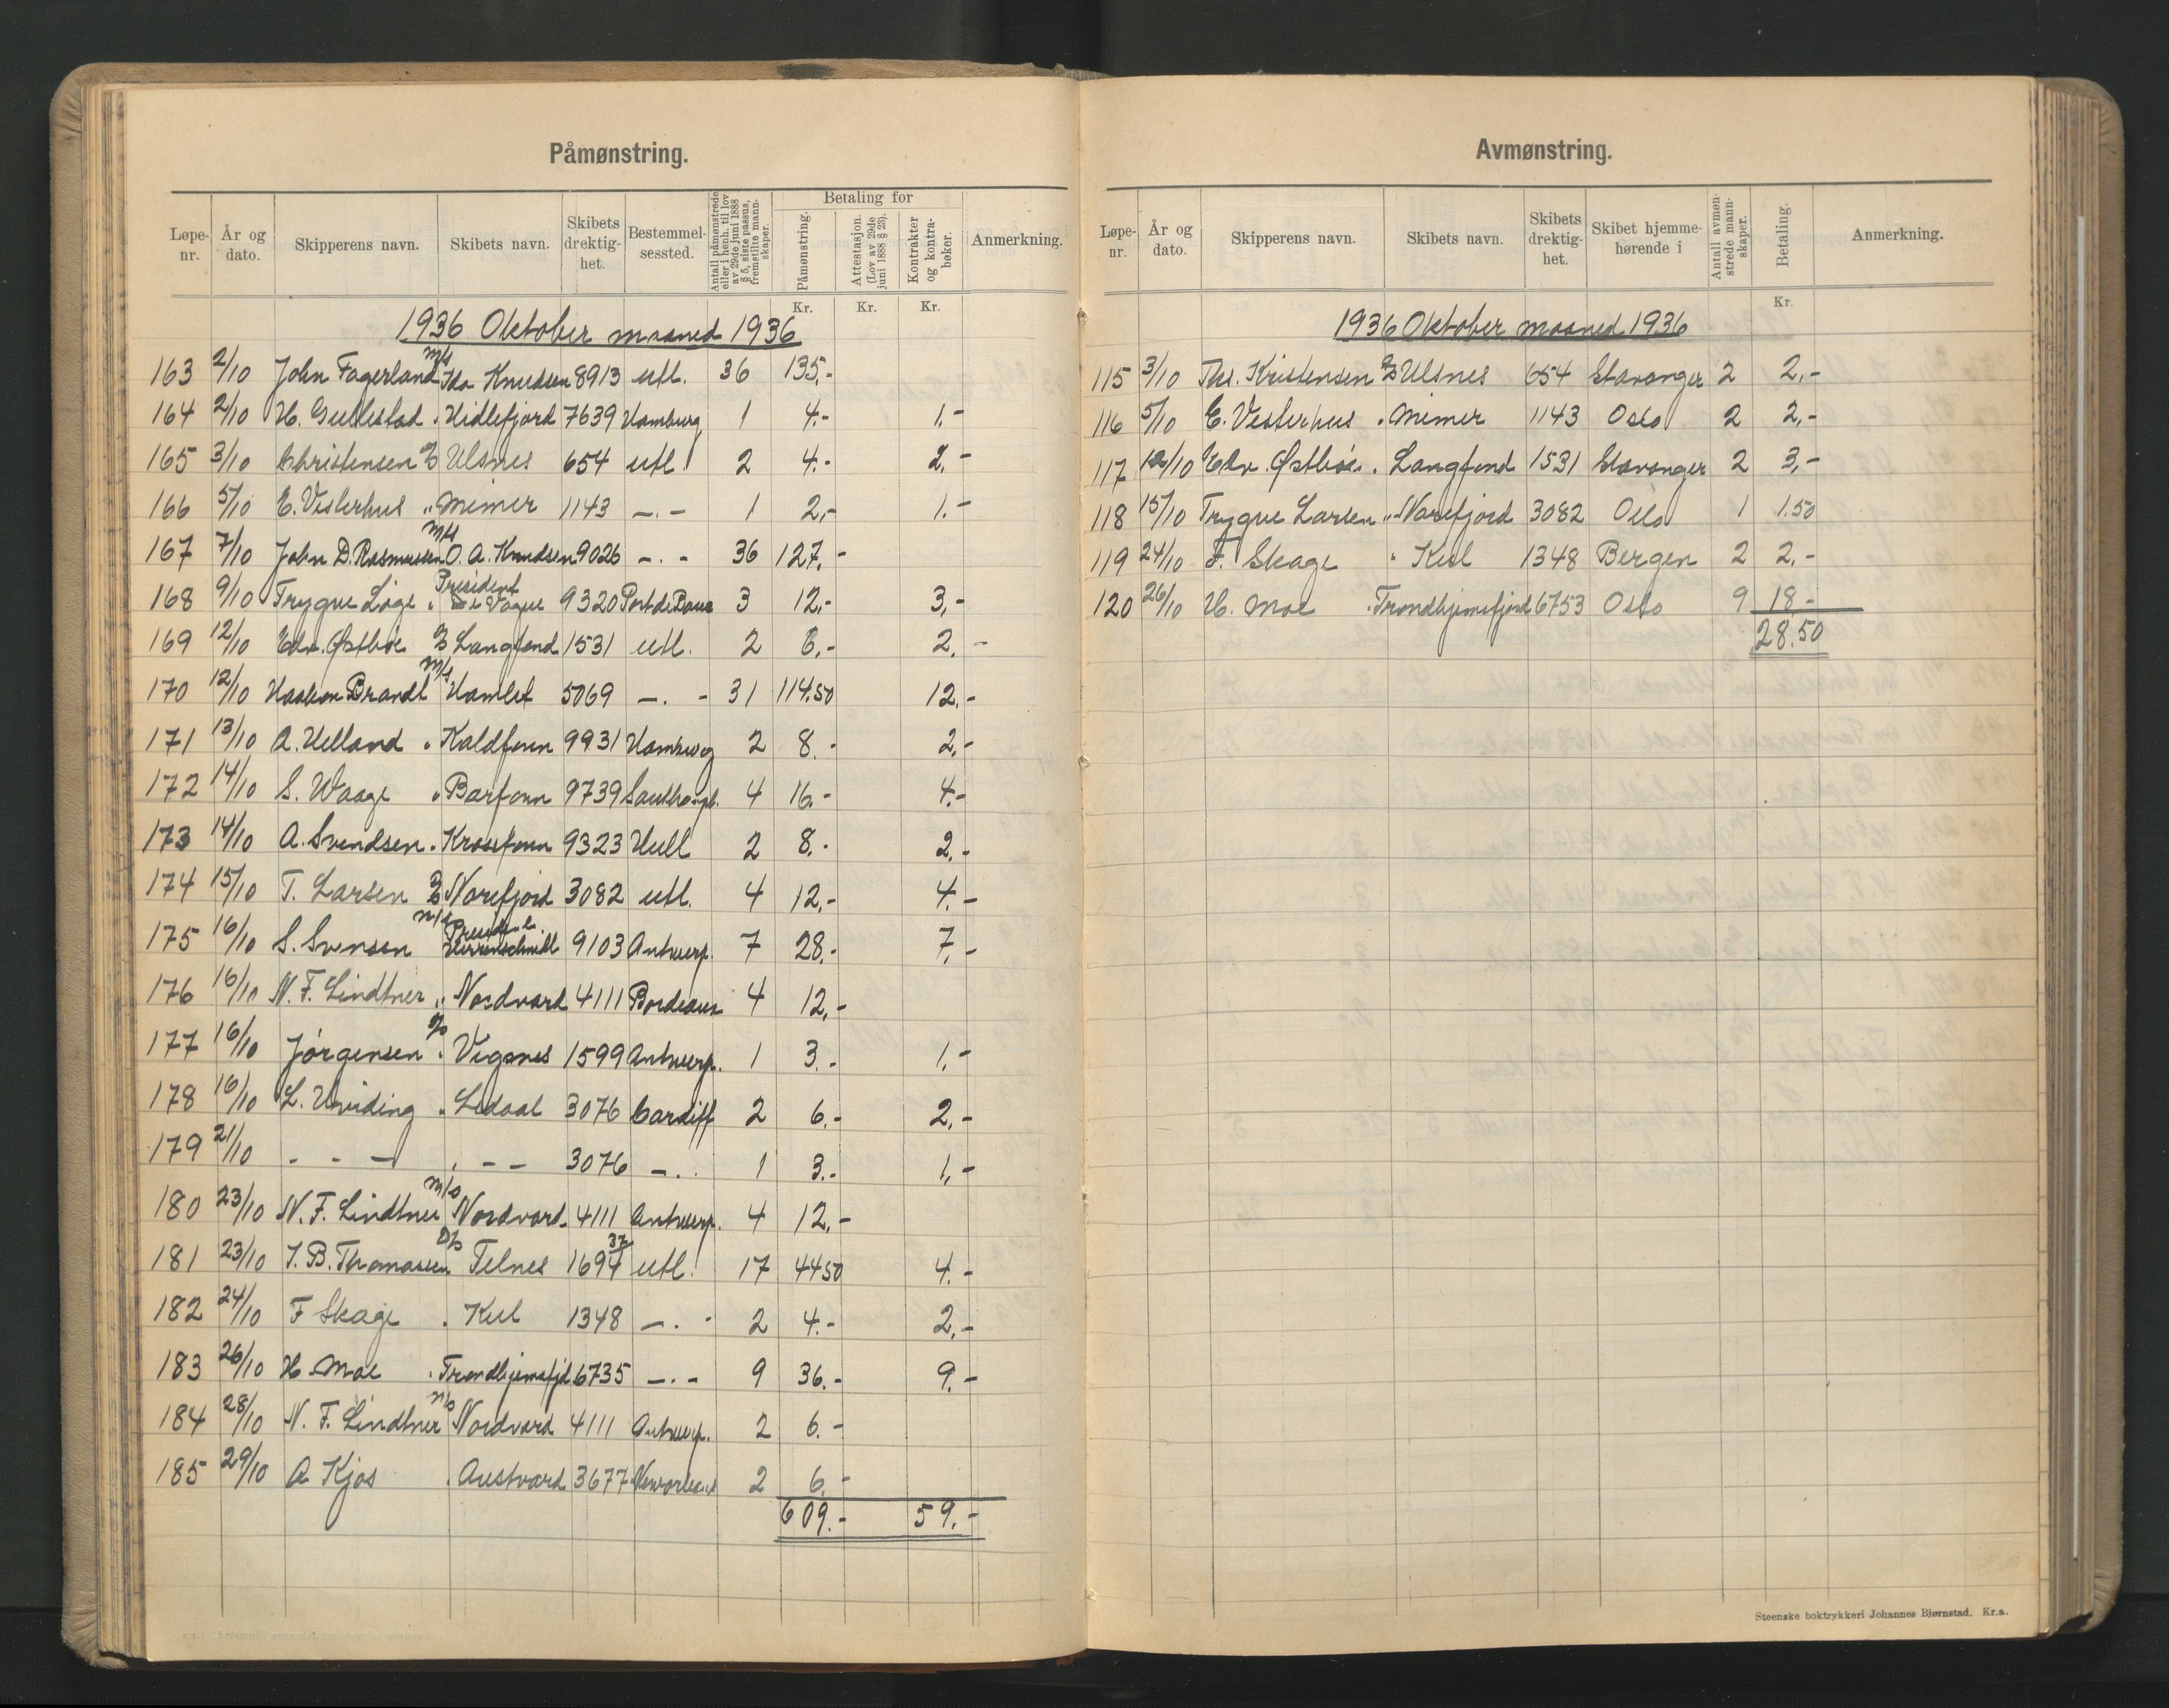 Påmønstring.
Løpe-nr. År og dato. Skipperens navn. Skibets navn. Skibets drektig-het. Bestemmel-sessted. Antall påmønstrede eller i henh. til lov av 29de juni 1888 § 5, siste passus, fremstilte mann-skaper. Betaling for Påmønstring. Attestasjon. (Lov av 29de juni 1888 § 23). Kontrakter og kontra-bøker. Anmerkning.
Kr. Kr. Kr.
1936 Oktober maaned 1936
163 2/10 John Fagerland m/s Ida Knudsen 8913 utl. 36 135,-
164 2/10 H. Gullestad " Hidlefjord 7639 Hamburg 1 4.- 1.-
165 3/10 Christensen D/S Ulsnes 654 utl. 2 4.- 2,-
166 5/10 E. Vesterhus " Mimer 1143 -.- 1 2,- 1.-
167 7/10 John D. Rasmussen m/s O. A. Knudsen 9026 -.- 36 127,-
168 9/10 Trygve Løge " President de Vogue 9320 Port de Bouc 3 12,- 3,-
169 12/10 Edv. Østbøe D/S Langfond 1531 utl. 2 6,- 2,-
170 12/10 Haakon Brandt m/s Hamlet 5069 -.- 31 114.50 12,-
171 13/10 A. Uelland " Kaldfonn 9931 Hamburg 2 8.- 2,-
172 14/10 S. Waage " Barfonn 9739 Southampt. 4 16.- 4.-
173 14/10 A. Svendsen " Krossfonn 9323 Hull 2 8.- 2,-
174 15/10 T. Larsen D/S Norefjord 3082 utl. 4 12,- 4.-
175 16/10 S. Svensen m/s President Herrenschmidt 9103 Antwerp. 7 28,- 7,-
176 16/10 N. F. Lindtner " Nordvard 4111 Bordeaux 4 12,-
177 16/10 Jørgensen D/S Vigsnes 1599 Antwerp. 1 3.- 1.-
178 16/10 L. Hviding " Ledaal 3076 Cardiff 2 6.- 2,-
179 21/10 - - - . - - 3076 -.. 1 3.- 1,-
180 23/10 N. F. Lindtner m/s Nordvard 4111 Antwerp. 4 12,-
181 23/10 J. B. Thomassen D/S Telnes 1694 37 utl. 17 44 50 4.-
182 24/10 F Skage . Kul 1348 -.- 2 4.- 2,-
183 26/10 H. Moe . Trondhjemsfjd 6735 -.- 9 36.- 9.-
184 28/10 N. F. Lindtner m/s Nordvard 4111 Antwerp. 2 6.-
185 29/10 A Kjos . Austvard 3677 Neworleans 2 6.-
609.- 59.-
Avmønstring.
Løpe-nr. År og dato. Skipperens navn. Skibets navn. Skibets drektig-het. Skibet hjemme-hørende i Antall avmøn-strede mann-skaper. Betaling. Anmerkning.
Kr.
1936 Oktober maaned 1936
115 3/10 Ths. Kristensen D/S Ulsnes 654 Stavanger 2 2,-
116 5/10 E. Vesterhus . Mimer 1143 Oslo 2 2,-
117 12/10 Edv. Østbøe . Langfond 1531 Stavanger 2 3,-
118 15/10 Trygve Larsen " Norefjord 3082 Oslo 1 1.50
119 24/10 F. Skage " Kul 1348 Bergen 2 2,-
120 26/10 H. Moe . Trondhjemsfjord 6753 Oslo 9 18.-
28.50
Steenske boktrykkeri Johannes Bjørnstad. Kr.a.